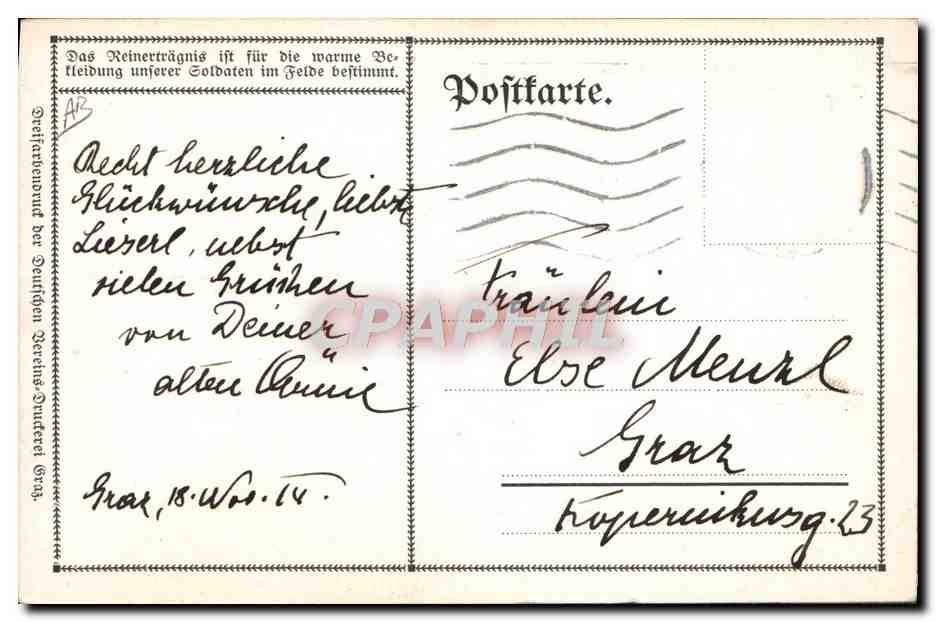 Das Reinerträgnis ist für die warme Be-
kleidung unserer Soldaten im Felde bestimmt.
AB
Recht herzliche
Glückwünsche, liebste
Lieserl, nebst
vielen Grüßen
von Deiner
alten
Graz, 18. Nov. 14.
Dreifarbendruck der Deutschen Vereins-Druckerei Graz.
Postkarte.
Fräulein
Else Menzl
Graz
Kopernikusg. 23
CPAPHIL